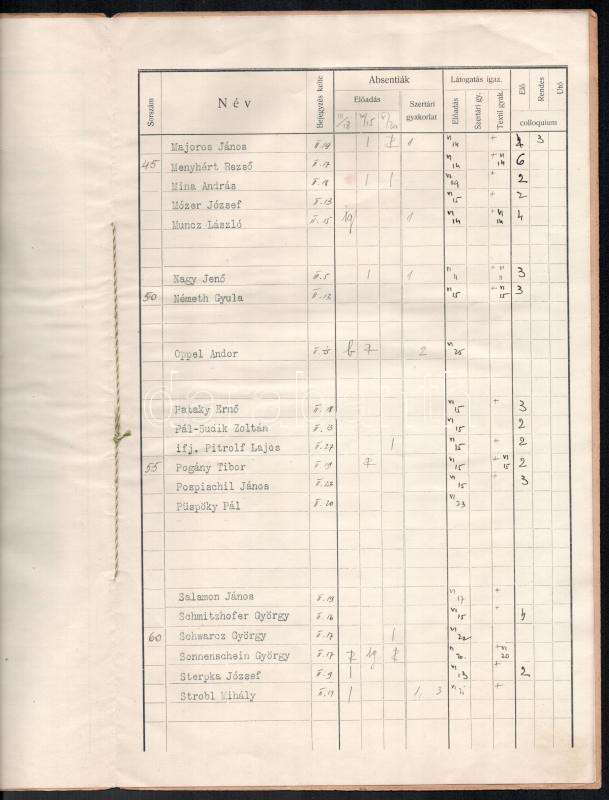 Sorszám Név Bejegyzés kelte Absentiák Látogatás igaz. Elő Rendes Utó
Előadás Szertári gyakorlat Előadás Szertári gy. Textil gyak. colloquium
III/18 IV/15 V/20
Majoros János II.19 1 1 VI 14 + 3
45 Menyhért Rezső II.17 VI 14 + VI 14 6
Mina András II.18 1 1 VI + 2
Mózer József II.13 VI 15 + 2
Muncz László II.15 ig 1 VI 14 + VI 14 4
Nagy Jenő II.5 1 1 VI + 3
50 Németh Gyula II.12 VI 15 + VI 15 3
Oppel Andor II.15 2 VI 25
Pataky Ernő II.18 VI 15 + 3
Pál-Sudik Zoltán II.13 VI 15 2
ifj. Pitrolf Lajos II.27 1 VI 15 + 2
55 Pogány Tibor II.19 VI 15 + VI 15 2
Pospischil János II.28 VI 15 + 3
Püspöky Pál II.20 VI 23
Salamon János II.19 VI 17 +
Schmitzhofer György II.16 VI 15 + 4
60 Schwarcz György II.17 1 VI 22
Sonnenschein György II.17 ig 20 + VI 20
Sterpka József II.9 1 VI 13 + 2
Strobl Mihály II.17 1 1, 3 VI +
darabanth